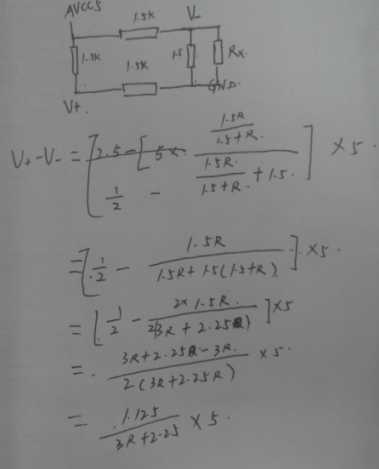 AVCCS
1.5K
V-
1.5K
1.5K
1.5
Rx.
V+.
GND.
V+-V- = [ 2.5 - [ 5× (1.5R / 1.5+R.)
1/2 - (1.5R. / 1.5+R.) / (1.5R. / 1.5+R. + 1.5.) ] ×5.
= [ 1/2 - 1.5R / (1.5R + 1.5(1.5+R)) ] ×5.
= [ 1/2 - 2×1.5R. / 2(3R + 2.25R) ] ×5
= . (3R+2.25R-3R.) / 2(3R+2.25R) ×5.
= 1.125 / (3R+2.25) ×5.